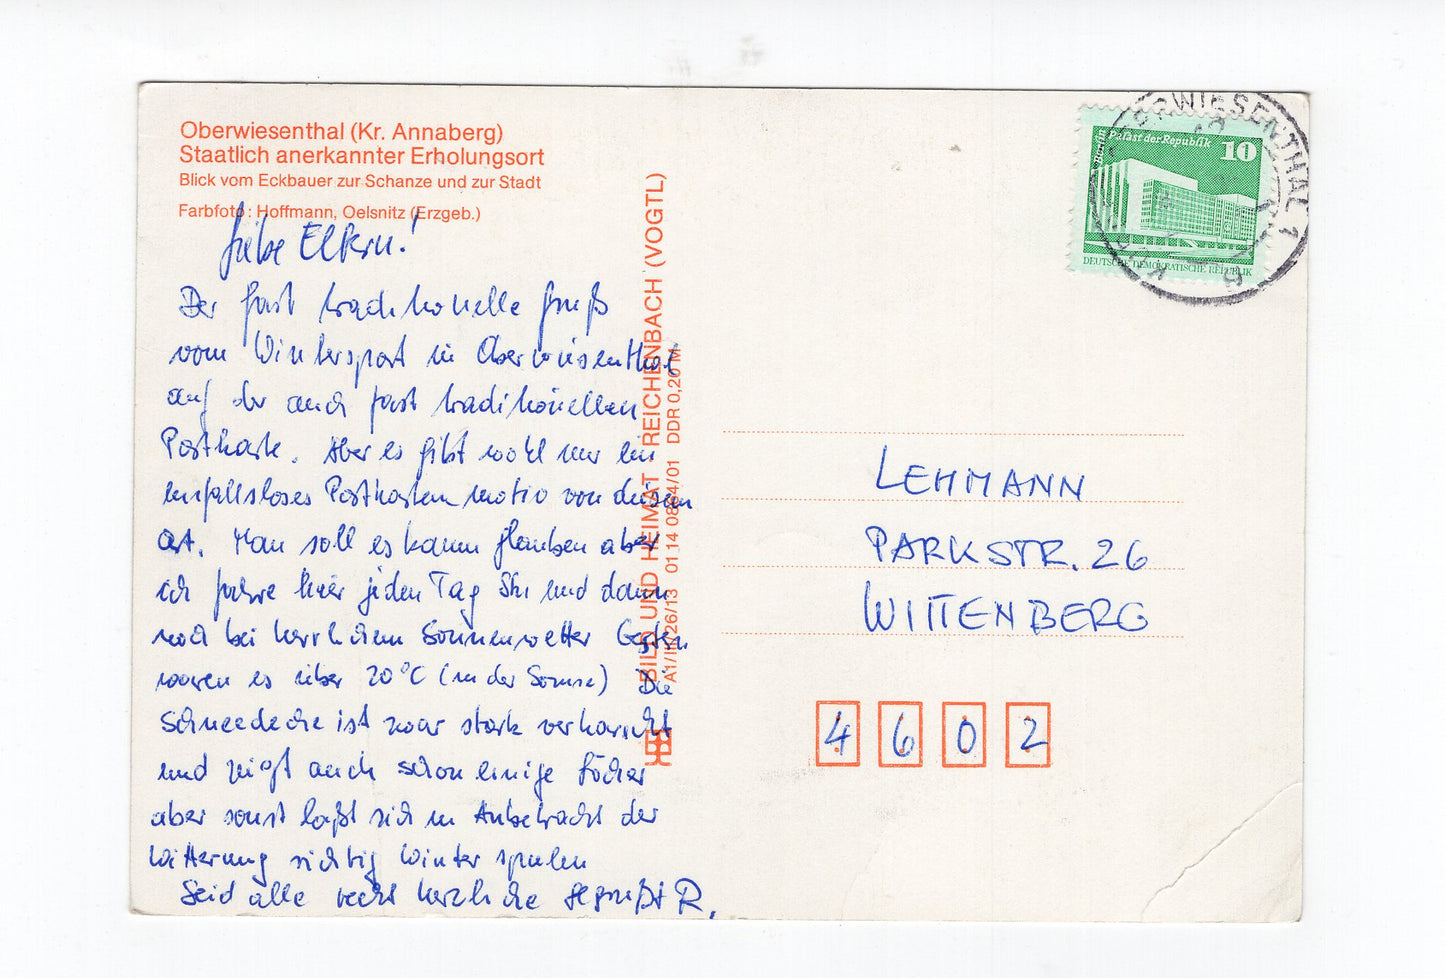 Oberwiesenthal (Kr. Annaberg)
Staatlich anerkannter Erholungsort
Blick vom Eckbauer zur Schanze und zur Stadt
Farbfoto: Hoffmann, Oelsnitz (Erzgeb.)
Liebe Eltern!
Der fast traditionelle Gruß
vom Wintersport in Oberwiesenthal
auf der auch fast traditionellen
Postkarte. Aber es gibt wohl nur ein
einfallsloses Postkartenmotiv von diesem
Ort. Man soll es kaum glauben aber
ich fahre hier jeden Tag Ski und dann
noch bei herrlichem Sonnenwetter Gestern
waren es über 20°C (in der Sonne) Die
Schneedecke ist zwar stark verharscht
und zeigt auch schon einige Löcher
aber sonst läßt sich in Anbetracht der
Witterung richtig Winter spielen
Seid alle recht herzliche gegrüßt R.
BILD UND HEIMAT REICHENBACH (VOGTL)
A1/III/26/13 01 14 08 84/01 DDR 0,20 M
OBERWIESENTHAL 1
Palast der Republik
10
DEUTSCHE DEMOKRATISCHE REPUBLIK
LEHMANN
PARKSTR. 26
WITTENBERG
4 6 0 2